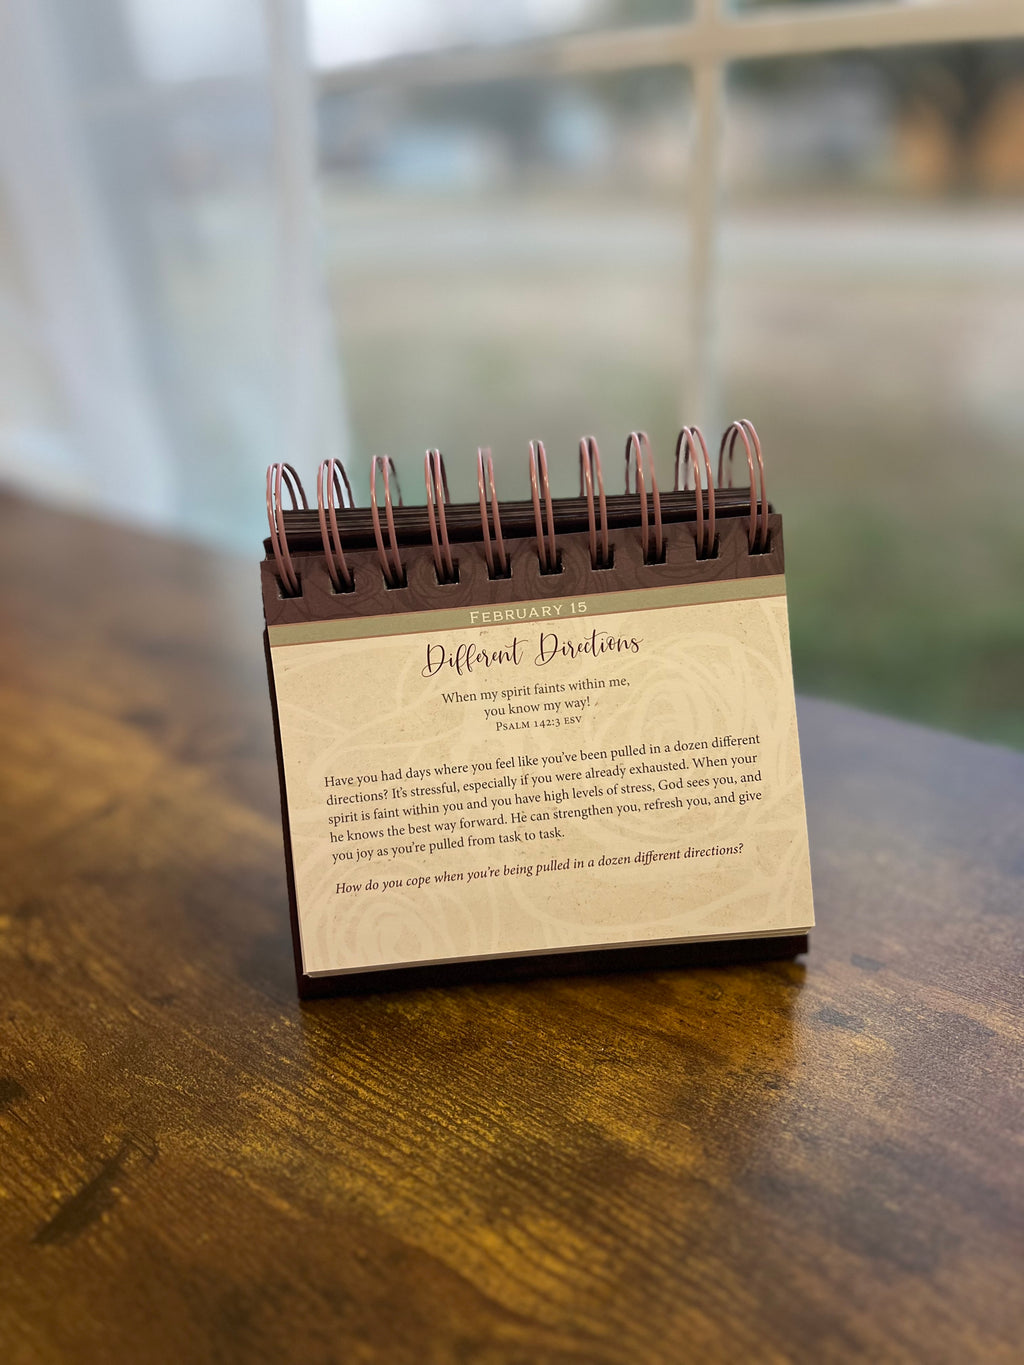 February 15
Different Directions
When my spirit faints within me,
you know my way!
Psalm 142:3 ESV
Have you had days where you feel like you’ve been pulled in a dozen different
directions? It’s stressful, especially if you were already exhausted. When your
spirit is faint within you and you have high levels of stress, God sees you, and
he knows the best way forward. He can strengthen you, refresh you, and give
you joy as you’re pulled from task to task.
How do you cope when you’re being pulled in a dozen different directions?